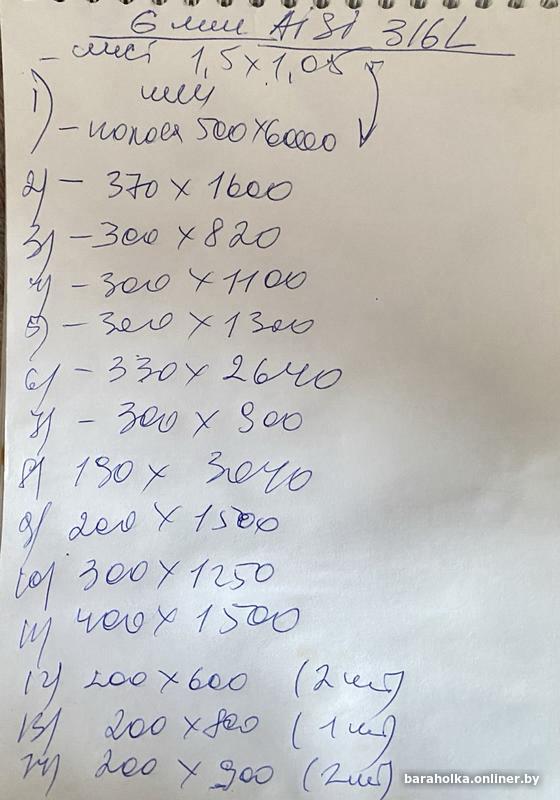 6 мм AiSi 316L
– лист 1,5х1,05
1) или
– полоса 500х6000
2) – 370 х 1600
3) – 300 х 820
4) – 300 х 1100
5) – 300 х 1300
6) – 330 х 2640
7) – 300 х 900
8) 190 х 3040
9) 200 х 1500
10) 300 х 1250
11) 400 х 1500
12) 200 х 600 (2 шт)
13) 200 х 800 (1 шт)
14) 200 х 900 (2 шт)
baraholka.onliner.by